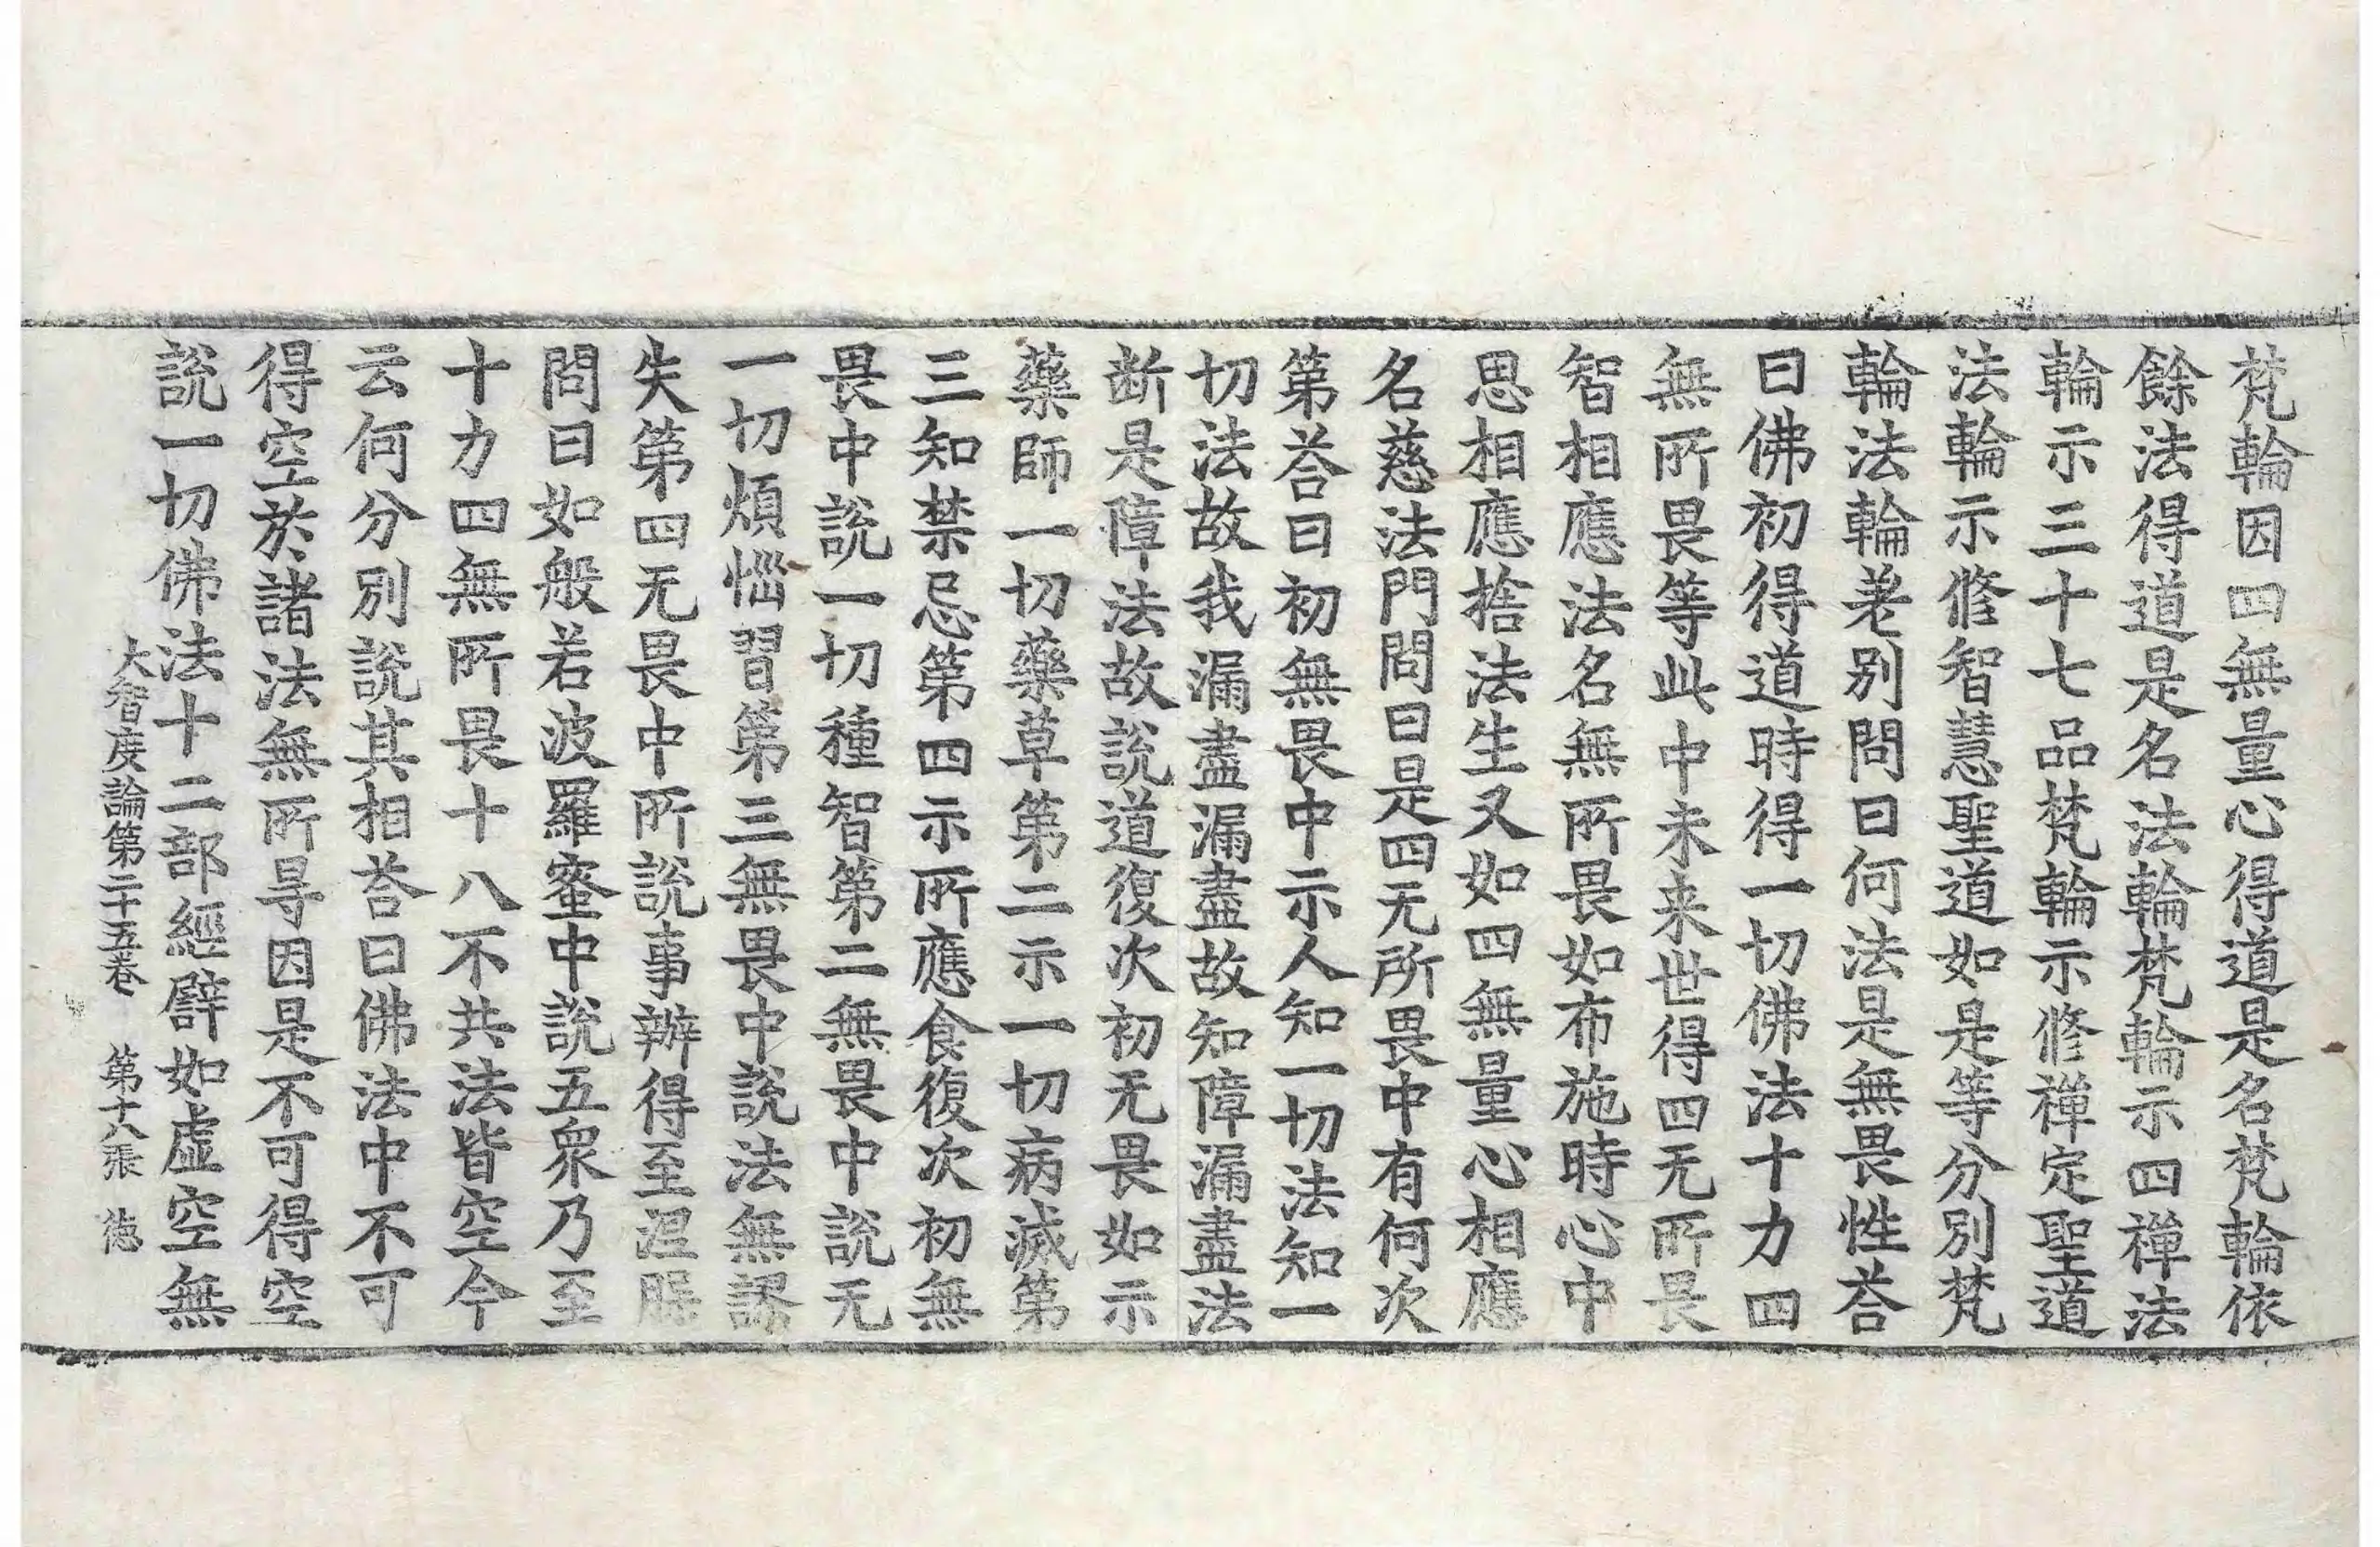 梵輪因四無量心得道是名梵輪依
餘法得道是名法輪梵輪示四禪法
輪示三十七品梵輪示修禪定聖道
法輪示修智慧聖道如是等分別梵
輪法輪差別問曰何法是無畏性荅
曰佛初得道時得一切佛法十力四
無所畏等此中未来世得四无所畏
智相應法名無所畏如布施時心中
思相應捨法生又如四無量心相應
名慈法門問曰是四无所畏中有何次
第荅曰初無畏中示人知一切法知一
切法故我漏盡漏盡故知障漏盡法
断是障法故說道復次初无畏如示
藥師一切藥草第二示一切病滅第
三知禁忌第四示所應食復次初無
畏中說一切種智第二無畏中說无
一切煩惱習第三無畏中說法無謬
失第四无畏中所說事辦得至涅槃
問曰如般若波羅蜜中說五眾乃至
十力四無所畏十八不共法皆空今
云何分別說其相荅曰佛法中不可
得空於諸法無所㝵因是不可得空
說一切佛法十二部經譬如虛空無
大智度論第二十五卷 第十八張 德